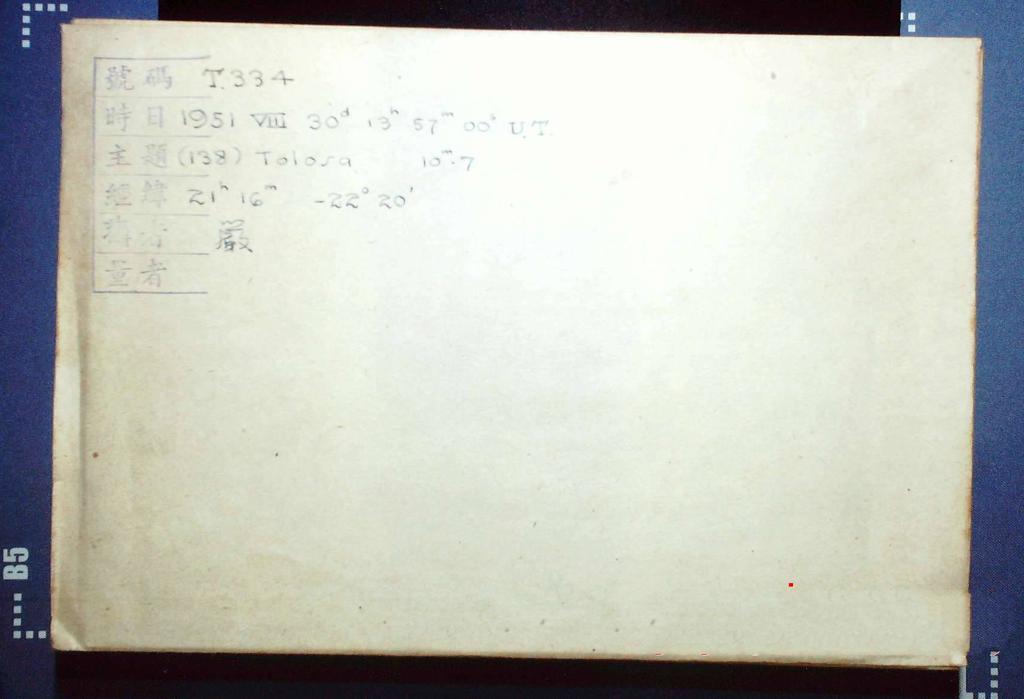 號碼 T.334
時日 1951 VIII 30ᵈ 13ʰ 57ᵐ 00ˢ U.T.
主題 (138) Tolosa 10ᵐ.7
經緯 21ʰ 16ᵐ -22° 20'
者 嚴
量者
B5